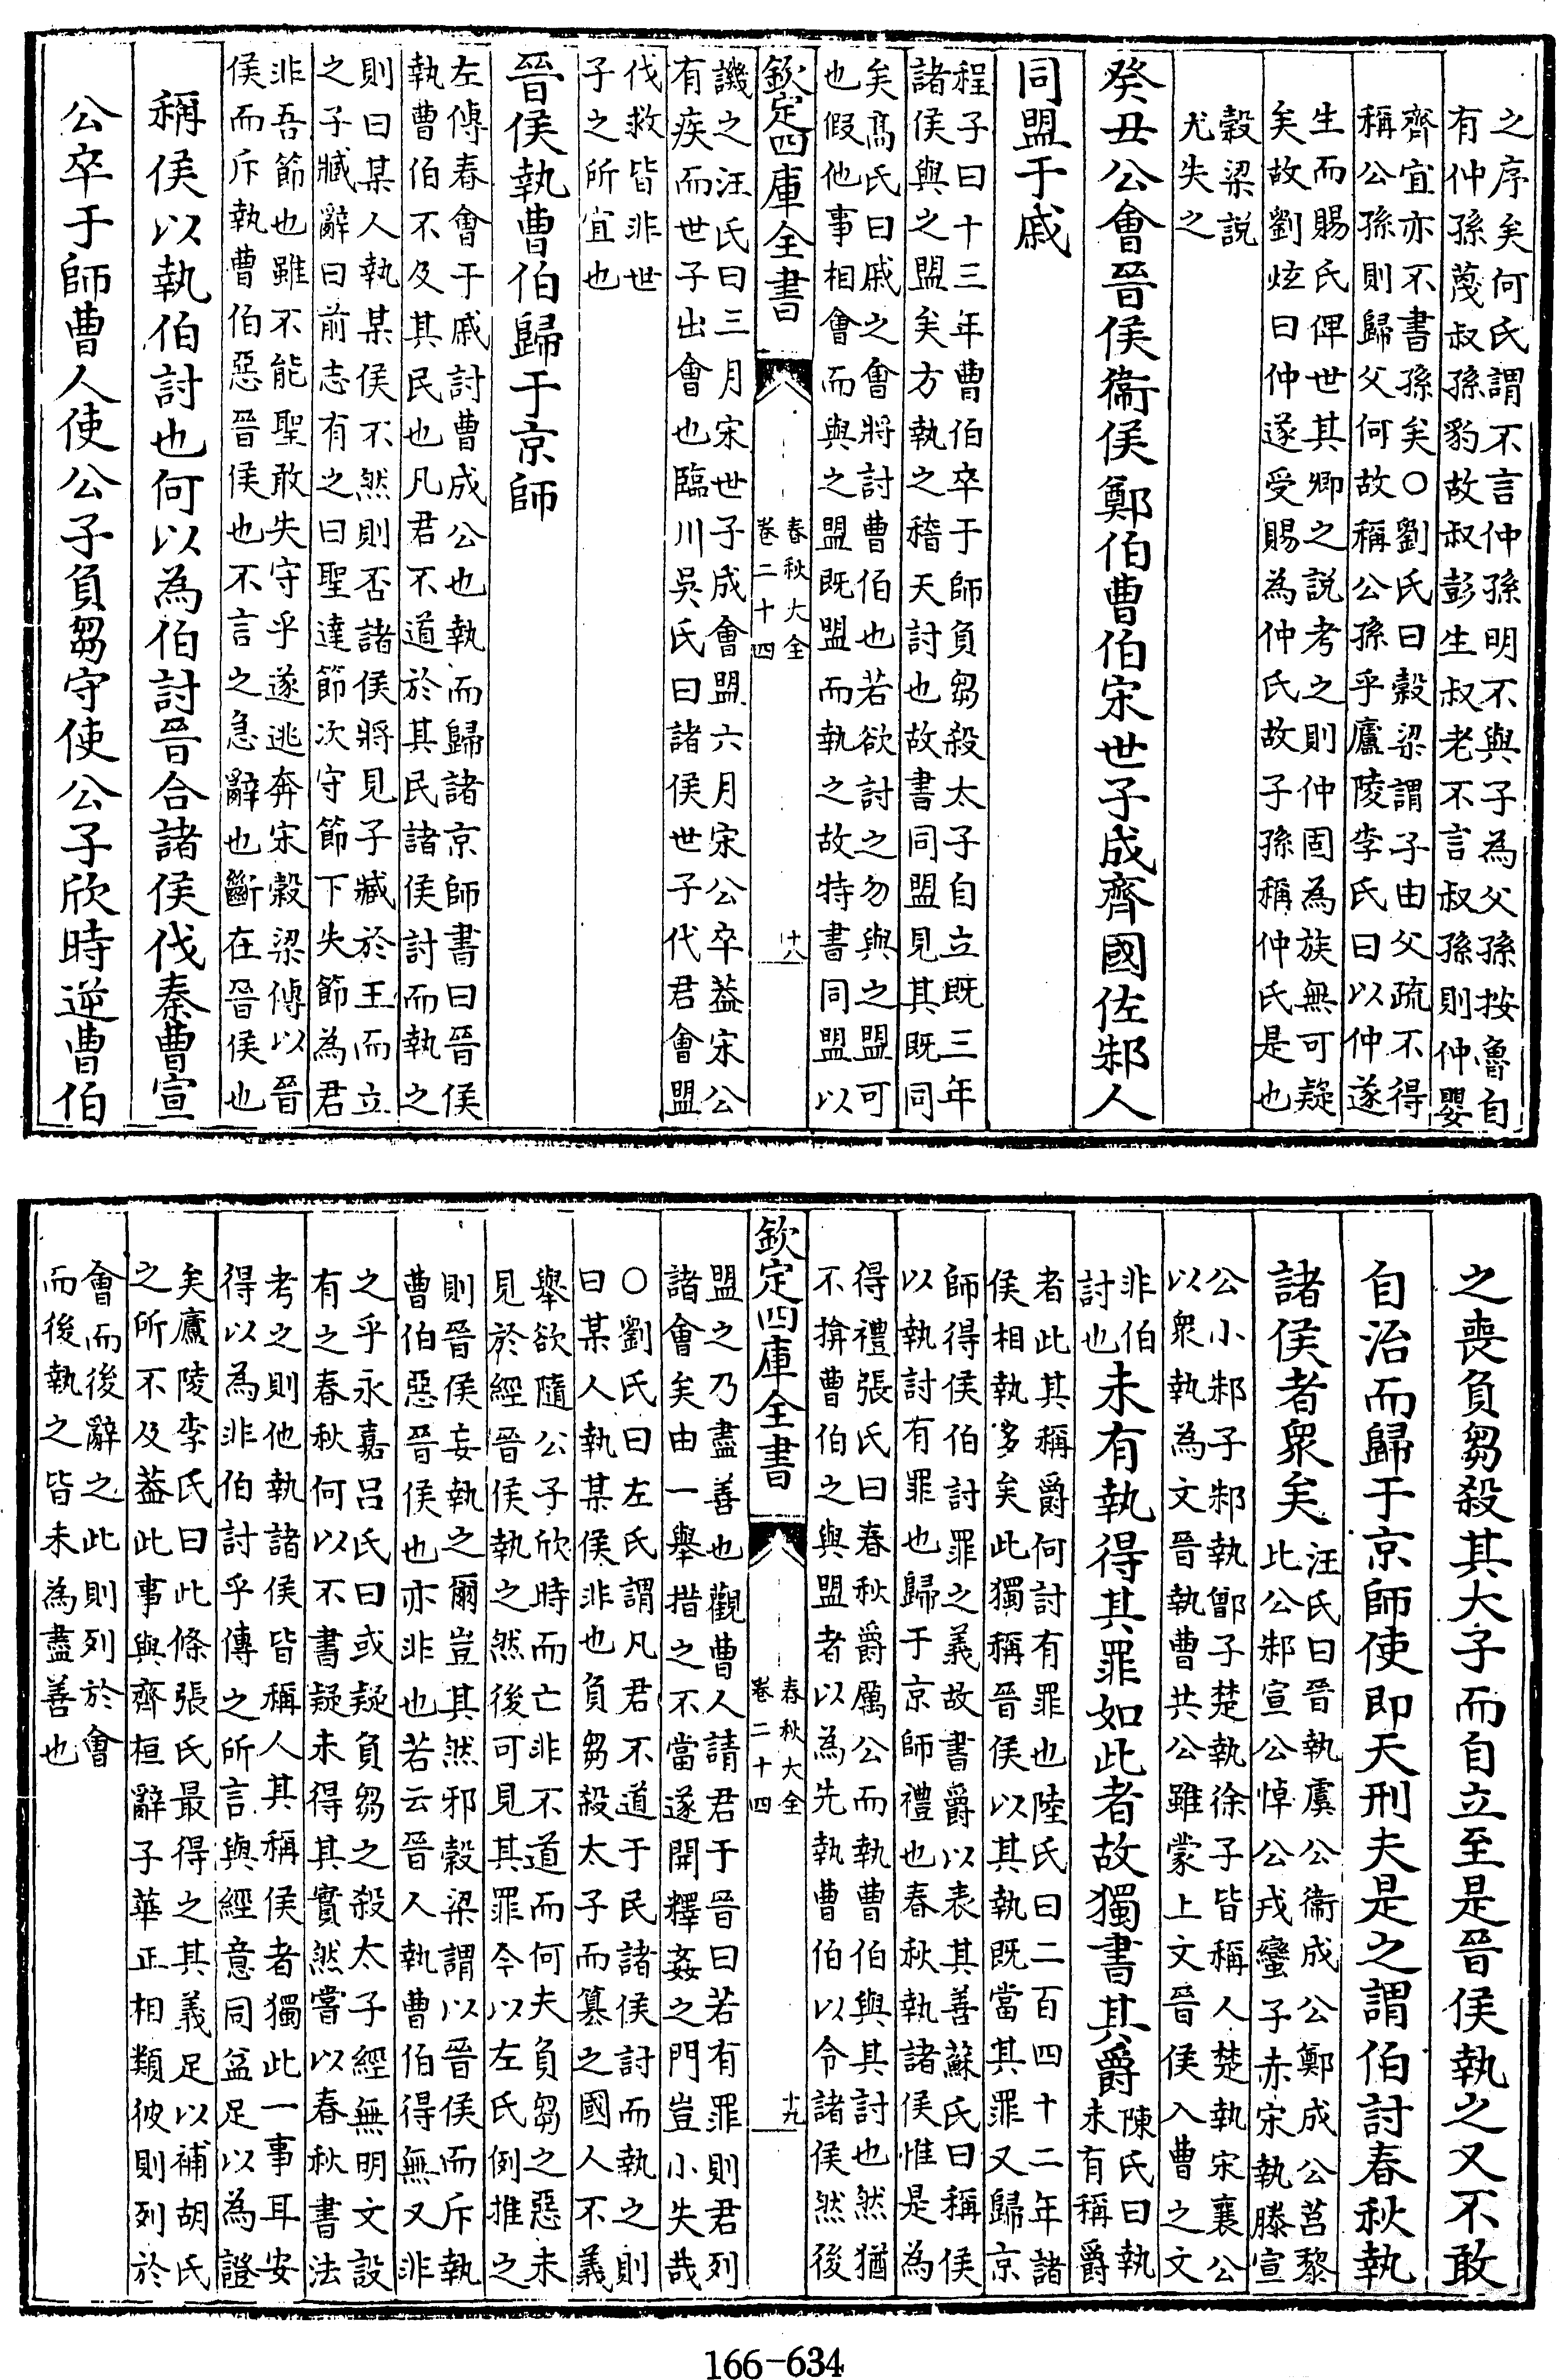 之序矣何氏謂不言仲孫明不與子為父孫按魯自
有仲孫蔑叔孫豹故叔彭生叔老不言叔孫則仲嬰
齊宜亦不書孫矣○劉氏曰穀梁謂子由父疏不得
稱公孫則歸父何故稱公孫乎廬陵李氏曰以仲遂
生而賜氏俾世其卿之説考之則仲固為族無可疑
矣故劉炫曰仲遂受賜為仲氏故子孫稱仲氏是也
穀梁説
尤失之
癸丑公會晉侯衞侯鄭伯曹伯宋世子成齊國佐邾人
同盟于戚
程子曰十三年曹伯卒于師負芻殺太子自立既三年
諸侯與之盟矣方執之稽天討也故書同盟見其既同
矣髙氏曰戚之會將討曹伯也若欲討之勿與之盟可
也假他事相會而與之盟既盟而執之故特書同盟以
欽定四庫全書
春秋大全
卷二十四
十八
譏之汪氏曰三月宋世子成會盟六月宋公卒葢宋公
有疾而世子出會也臨川吳氏曰諸侯世子代君會盟
伐救皆非世
子之所宜也
晉侯執曹伯歸于京師
左傳春會于戚討曹成公也執而歸諸京師書曰晉侯
執曹伯不及其民也凡君不道於其民諸侯討而執之
則曰某人執某侯不然則否諸侯將見子臧於王而立
之子臧辭曰前志有之曰聖達節次守節下失節為君
非吾節也雖不能聖敢失守乎遂逃奔宋穀梁傳以晉
侯而斥執曹伯惡晉侯也不言之急辭也斷在晉侯也
稱侯以執伯討也何以為伯討晉合諸侯伐秦曹宣
公卒于師曹人使公子負芻守使公子欣時逆曹伯
之喪負芻殺其大子而自立至是晉侯執之又不敢
自治而歸于京師使即天刑夫是之謂伯討春秋執
諸侯者衆矣
汪氏曰晉執虞公衞成公鄭成公莒黎
比公邾宣公悼公戎蠻子赤宋執滕宣
公小邾子邾執鄫子楚執徐子皆稱人楚執宋襄公
以衆執為文晉執曹共公雖蒙上文晉侯入曹之文
非伯
討也
未有執得其罪如此者故獨書其爵
陳氏曰執
未有稱爵
者此其稱爵何討有罪也陸氏曰二百四十二年諸
侯相執多矣此獨稱晉侯以其執既當其罪又歸京
師得侯伯討罪之義故書爵以表其善蘇氏曰稱侯
以執討有罪也歸于京師禮也春秋執諸侯惟是為
得禮張氏曰春秋爵厲公而執曹伯與其討也然猶
不揜曹伯之與盟者以為先執曹伯以令諸侯然後
欽定四庫全書
春秋大全
卷二十四
十九
盟之乃盡善也觀曹人請君于晉曰若有罪則君列
諸會矣由一舉措之不當遂開釋姦之門豈小失哉
○劉氏曰左氏謂凡君不道于民諸侯討而執之則
曰某人執某侯非也負芻殺太子而簒之國人不義
舉欲隨公子欣時而亡非不道而何夫負芻之惡未
見於經晉侯執之然後可見其罪今以左氏例推之
則晉侯妄執之爾豈其然邪穀梁謂以晉侯而斥執
曹伯惡晉侯也亦非也若云晉人執曹伯得無又非
之乎永嘉呂氏曰或疑負芻之殺太子經無明文設
有之春秋何以不書疑未得其實然嘗以春秋書法
考之則他執諸侯皆稱人其稱侯者獨此一事耳安
得以為非伯討乎傳之所言與經意同盆足以為證
矣廬陵李氏曰此條張氏最得之其義足以補胡氏
之所不及葢此事與齊桓辭子華正相類彼則列於
會而後辭之此則列於會
而後執之皆未為盡善也
166-634